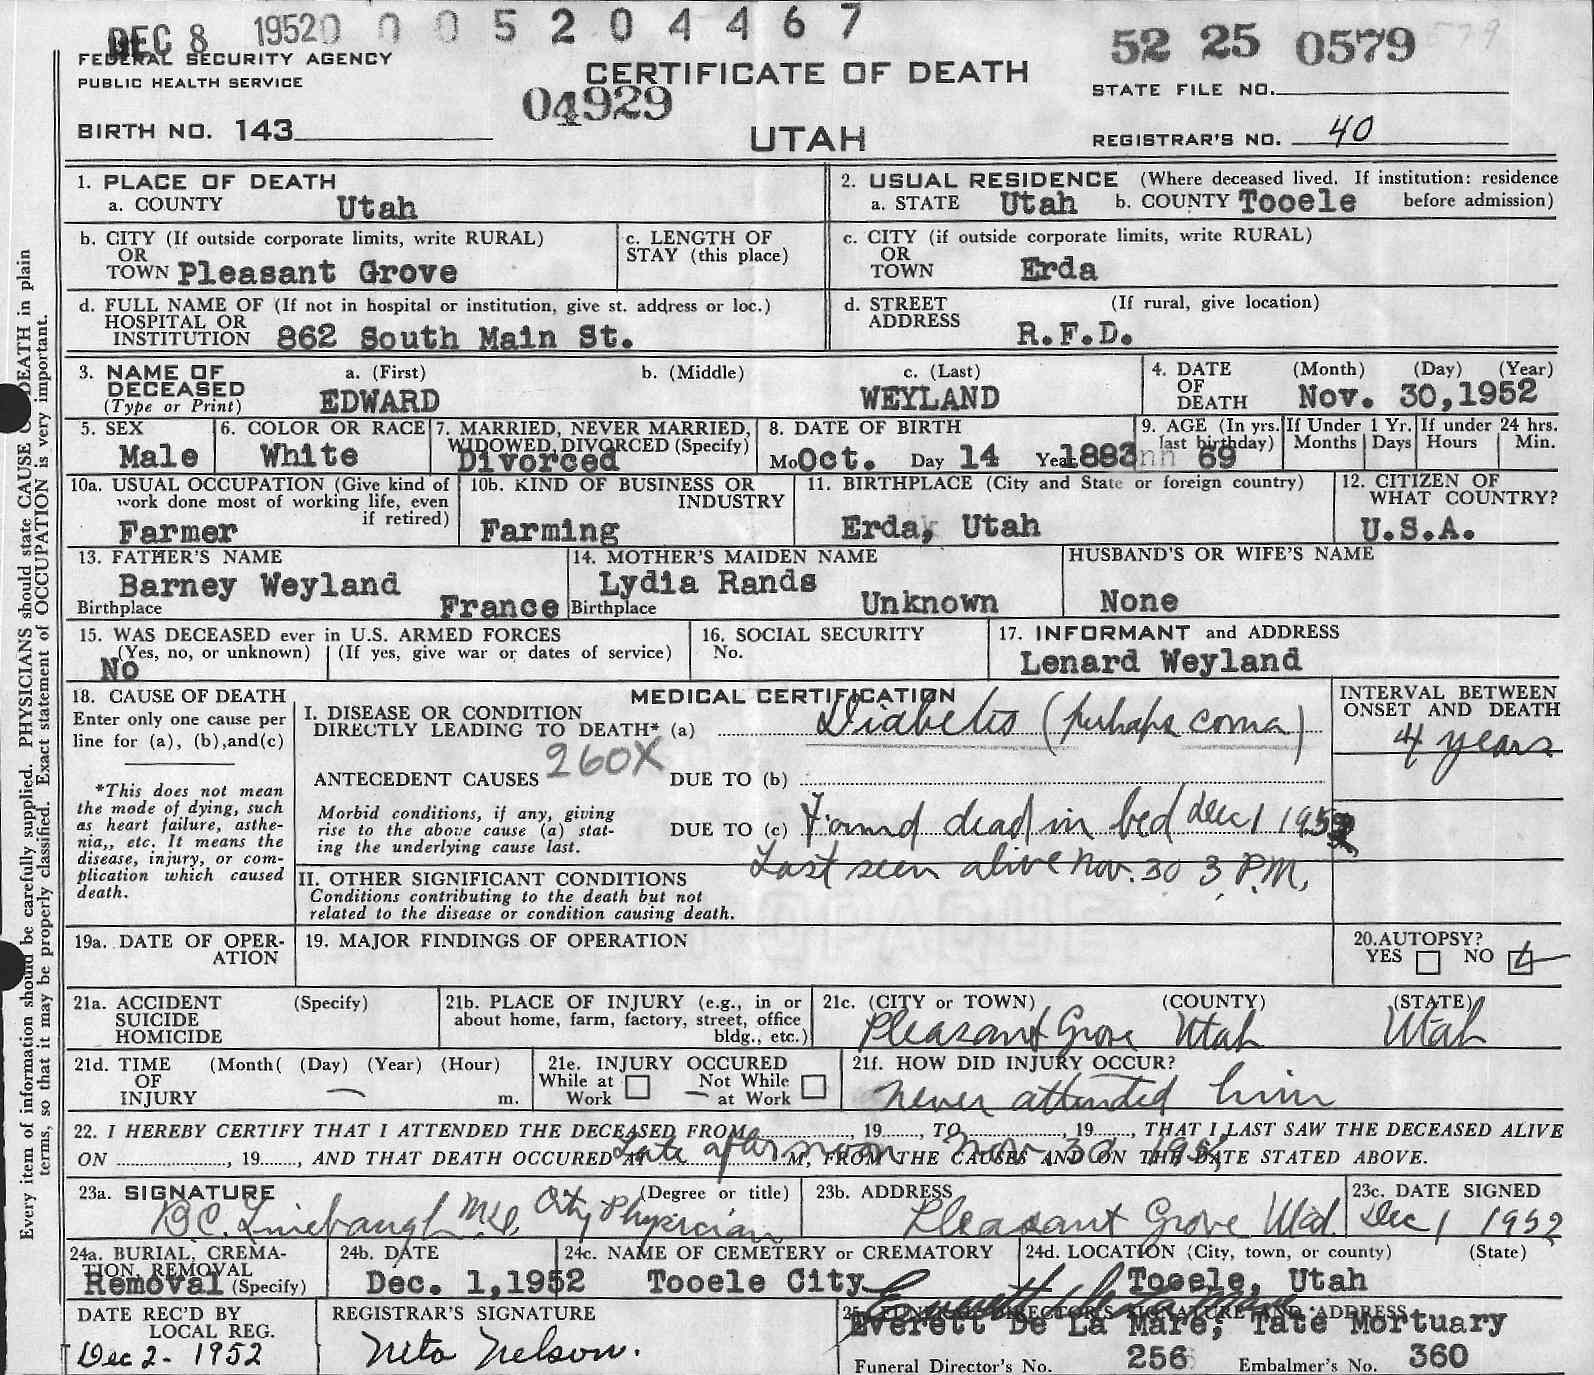 DEC 8 1952 0 0 0 5 2 0 4 4 6 7
52 25 0579
FEDERAL SECURITY AGENCY
PUBLIC HEALTH SERVICE
CERTIFICATE OF DEATH
04929
UTAH
STATE FILE NO.
BIRTH NO. 143
REGISTRAR'S NO. 40
1. PLACE OF DEATH
a. COUNTY Utah
2. USUAL RESIDENCE (Where deceased lived. If institution: residence
a. STATE Utah b. COUNTY Tooele before admission)
b. CITY (If outside corporate limits, write RURAL)
OR
TOWN Pleasant Grove
c. LENGTH OF
STAY (this place)
c. CITY (if outside corporate limits, write RURAL)
OR
TOWN Erda
d. FULL NAME OF (If not in hospital or institution, give st. address or loc.)
HOSPITAL OR
INSTITUTION 862 South Main St.
d. STREET (If rural, give location)
ADDRESS R.F.D.
3. NAME OF a. (First) b. (Middle) c. (Last)
DECEASED
(Type or Print) EDWARD WEYLAND
4. DATE (Month) (Day) (Year)
OF
DEATH Nov. 30,1952
5. SEX
Male
6. COLOR OR RACE
White
7. MARRIED, NEVER MARRIED,
WIDOWED, DIVORCED (Specify)
Divorced
8. DATE OF BIRTH
Mo Oct. Day 14 Year 1883
9. AGE (In yrs.
last birthday)
69
If Under 1 Yr.
Months Days
If under 24 hrs.
Hours Min.
10a. USUAL OCCUPATION (Give kind of
work done most of working life, even
if retired)
Farmer
10b. KIND OF BUSINESS OR
INDUSTRY
Farming
11. BIRTHPLACE (City and State or foreign country)
Erda, Utah
12. CITIZEN OF
WHAT COUNTRY?
U.S.A.
13. FATHER'S NAME
Barney Weyland
Birthplace France
14. MOTHER'S MAIDEN NAME
Lydia Rands
Birthplace Unknown
HUSBAND'S OR WIFE'S NAME
None
15. WAS DECEASED ever in U.S. ARMED FORCES
(Yes, no, or unknown) (If yes, give war or dates of service)
No
16. SOCIAL SECURITY
No.
17. INFORMANT and ADDRESS
Lenard Weyland
18. CAUSE OF DEATH
Enter only one cause per
line for (a), (b),and(c)
*This does not mean
the mode of dying, such
as heart failure, asthe-
nia,, etc. It means the
disease, injury, or com-
plication which caused
death.
MEDICAL CERTIFICATION
I. DISEASE OR CONDITION
DIRECTLY LEADING TO DEATH* (a) Diabetes (perhaps coma)
260X
ANTECEDENT CAUSES DUE TO (b)
Morbid conditions, if any, giving
rise to the above cause (a) stat-
ing the underlying cause last.
DUE TO (c) Found dead in bed Dec 1 1952
Last seen alive Nov. 30 3 P.M.
INTERVAL BETWEEN
ONSET AND DEATH
4 years
II. OTHER SIGNIFICANT CONDITIONS
Conditions contributing to the death but not
related to the disease or condition causing death.
19a. DATE OF OPER-
ATION
19. MAJOR FINDINGS OF OPERATION
20. AUTOPSY?
YES NO
21a. ACCIDENT (Specify)
SUICIDE
HOMICIDE
21b. PLACE OF INJURY (e.g., in or
about home, farm, factory, street, office
bldg., etc.)
21c. (CITY or TOWN) (COUNTY) (STATE)
Pleasant Grove Utah Utah
21d. TIME (Month( (Day) (Year) (Hour)
OF
INJURY — m.
21e. INJURY OCCURED
While at Work Not While at Work
21f. HOW DID INJURY OCCUR?
never attended him
22. I HEREBY CERTIFY THAT I ATTENDED THE DECEASED FROM, 19, TO, 19, THAT I LAST SAW THE DECEASED ALIVE
ON, 19, AND THAT DEATH OCCURED AT M, FROM THE CAUSES AND ON THE DATE STATED ABOVE.
Late afternoon Nov 30 1952
23a. SIGNATURE (Degree or title)
B.C. Linebaugh M.D. City Physician
23b. ADDRESS
Pleasant Grove Utah
23c. DATE SIGNED
Dec 1 1952
24a. BURIAL, CREMA-
TION, REMOVAL
Removal (Specify)
24b. DATE
Dec. 1,1952
24c. NAME OF CEMETERY or CREMATORY
Tooele City
24d. LOCATION (City, town, or county) (State)
Tooele, Utah
DATE REC'D BY
LOCAL REG.
Dec 2- 1952
REGISTRAR'S SIGNATURE
Neta Nelson.
25. FUNERAL DIRECTOR'S SIGNATURE AND ADDRESS
Everett De La Mare, Tate Mortuary
Funeral Director's No. 256 Embalmer's No. 360
Every item of information should be carefully supplied. PHYSICIANS should state CAUSE OF DEATH in plain
terms, so that it may be properly classified. Exact statement of OCCUPATION is very important.